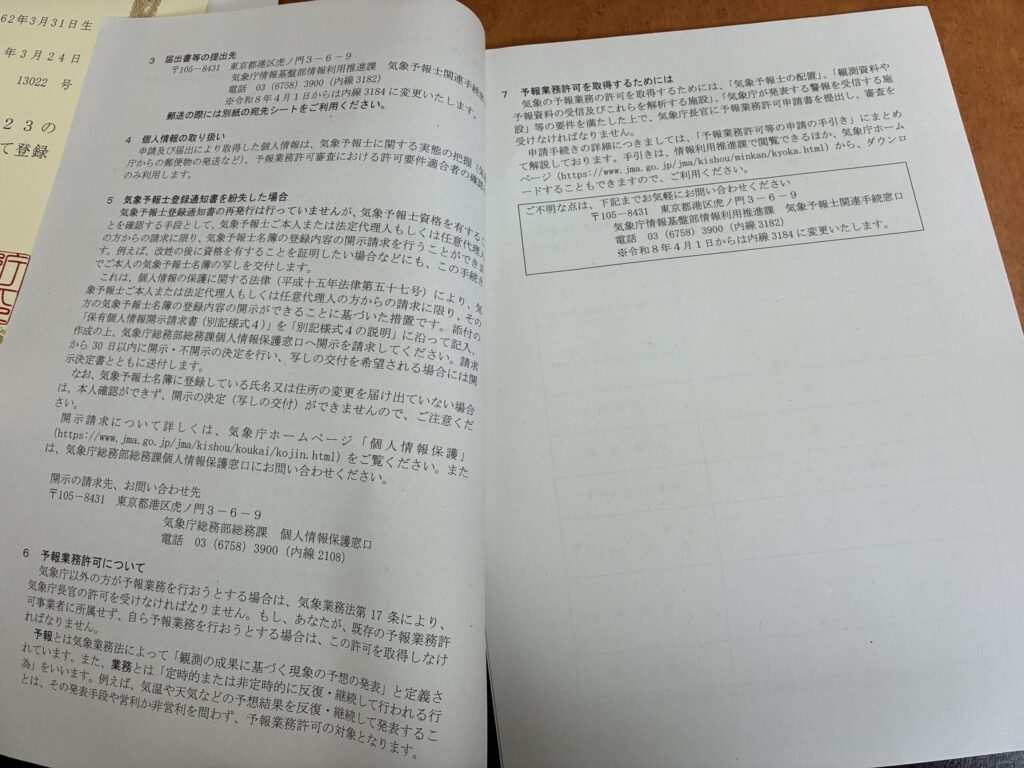 62年3月31日生
年3月24日
13022 号
23の
て登録
3 届出書等の提出先
〒105-8431 東京都港区虎ノ門3-6-9
気象庁情報基盤部情報利用推進課 気象予報士関連手続
電話 03 (6758) 3900 (内線 3182)
※令和8年4月1日からは内線 3184 に変更いたします。
郵送の際には別紙の宛先シートをご利用ください。
4 個人情報の取り扱い
申請及び届出により取得した個人情報は、気象予報士に関する実態の把握(気
庁からの郵便物の発送など)、予報業務許可審査における許可要件適合者の確認
のみ利用します。
5 気象予報士登録通知書を紛失した場合
気象予報士登録通知書の再発行は行っていませんが、気象予報士資格を有する
ことを確認する手段として、気象予報士ご本人または法定代理人もしくは任意代理人
の方からの請求に限り、気象予報士名簿の登録内容の開示請求を行うことができま
す。例えば、改姓の後に資格を有することを証明したい場合などにも、この手続き
でご本人の気象予報士名簿の写しを交付します。
これは、個人情報の保護に関する法律(平成十五年法律第五十七号)により、気
象予報士ご本人または法定代理人もしくは任意代理人の方からの請求に限り、その
方の気象予報士名簿の登録内容の開示ができることに基づいた措置です。添付の
「保有個人情報開示請求書(別記様式4)」を「別記様式4の説明」に沿って記入、
作成の上、気象庁総務部総務課個人情報保護窓口へ開示を請求してください。請求
から 30 日以内に開示・不開示の決定を行い、写しの交付を希望される場合には開
示決定書とともに送付します。
なお、気象予報士名簿に登録している氏名又は住所の変更を届け出ていない場合
は、本人確認ができず、開示の決定(写しの交付)ができませんので、ご注意くだ
さい。
開示請求について詳しくは、気象庁ホームページ「個人情報保護」
(https://www.jma.go.jp/jma/kishou/koukai/kojin.html) をご覧ください。また
は、気象庁総務部総務課個人情報保護窓口にお問い合わせください。
開示の請求先、お問い合わせ先
〒105-8431 東京都港区虎ノ門3-6-9
気象庁総務部総務課 個人情報保護窓口
電話 03 (6758) 3900 (内線 2108)
6 予報業務許可について
気象庁以外の方が予報業務を行おうとする場合は、気象業務法第 17 条により、
気象庁長官の許可を受けなければなりません。もし、あなたが、既存の予報業務許
可事業者に所属せず、自ら予報業務を行おうとする場合は、この許可を取得しなけ
ればなりません。
予報とは気象業務法によって「観測の成果に基づく現象の予想の発表」と定義さ
れています。また、業務とは「定時的または非定時的に反復・継続して行われる行
為」をいいます。例えば、気温や天気などの予想結果を反復・継続して発表するこ
とは、その発表手段や営利か非営利を問わず、予報業務許可の対象となります。
7 予報業務許可を取得するためには
気象の予報業務の許可を取得するためには、「気象予報士の配置」、「観測資料や
予報資料の受信及びこれらを解析する施設」、「気象庁が発表する警報を受信する施
設」等の要件を満たした上で、気象庁長官に予報業務許可申請書を提出し、審査を
受けなければなりません。
申請手続きの詳細につきましては、「予報業務許可等の申請の手引き」にまとめ
て解説しております。手引きは、情報利用推進課で閲覧できるほか、気象庁ホーム
ページ (https://www.jma.go.jp/jma/kishou/minkan/kyoka.html) から、ダウンロ
ードすることもできますので、ご利用ください。
ご不明な点は、下記までお気軽にお問い合わせください
〒105-8431 東京都港区虎ノ門3-6-9
気象庁情報基盤部情報利用推進課 気象予報士関連手続窓口
電話 03 (6758) 3900 (内線 3182)
※令和8年4月1日からは内線 3184 に変更いたします。